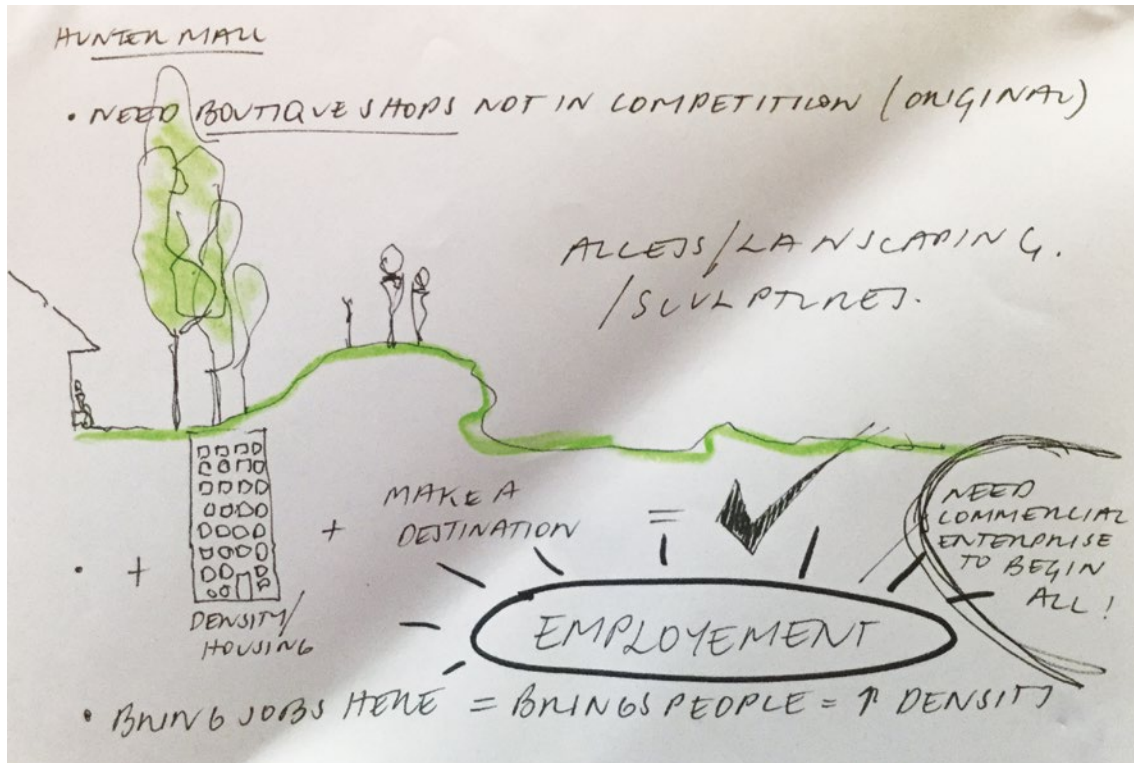 HUNTER MALL
• NEED BOUTIQUE SHOPS NOT IN COMPETITION (ORIGINAL)
ACCESS/LANSCAPING.
/SCULPTURES.
• + DENSITY/
HOUSING
+ MAKE A
DESTINATION
=
NEED
COMMERCIAL
ENTERPRISE
TO BEGIN
ALL!
EMPLOYEMENT
• BRING JOBS HERE = BRINGS PEOPLE = ↑ DENSITY